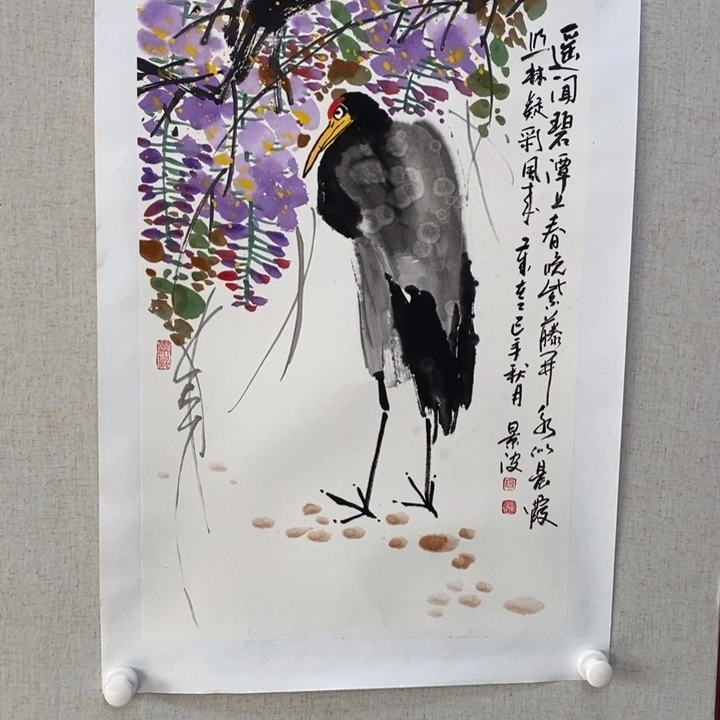 遥闻碧潭上春晚紫藤开水似晨霞
照林疑彩凤来 岁在乙巳年秋月
景波